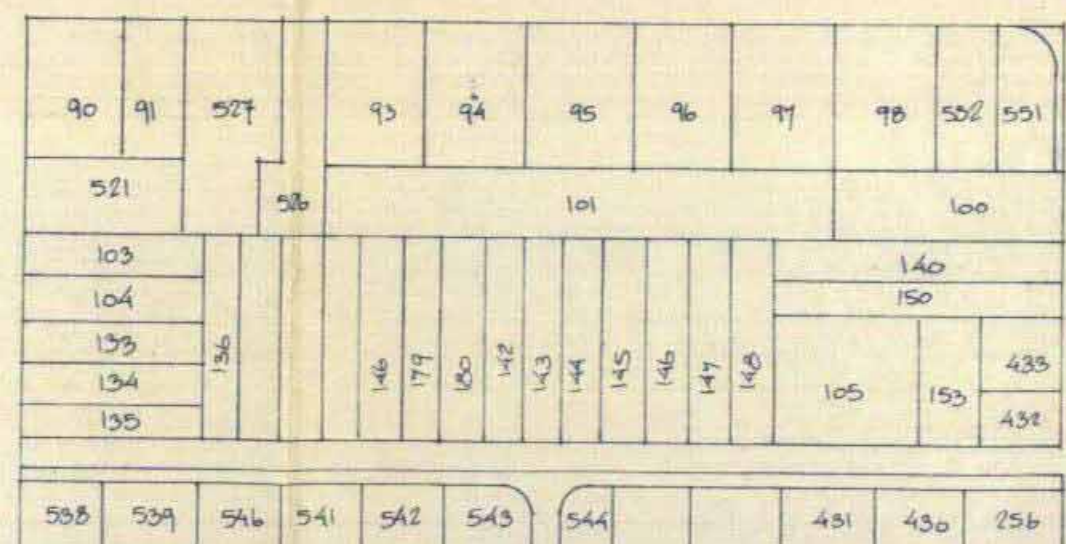 90 91 527 93 94 95 96 97 98 552 551
521 526 101 100
103 140
104 150
133 136 146 179 180 142 143 144 145 146 147 148 433
134 105 153
135 432
538 539 546 541 542 543 544 431 430 256